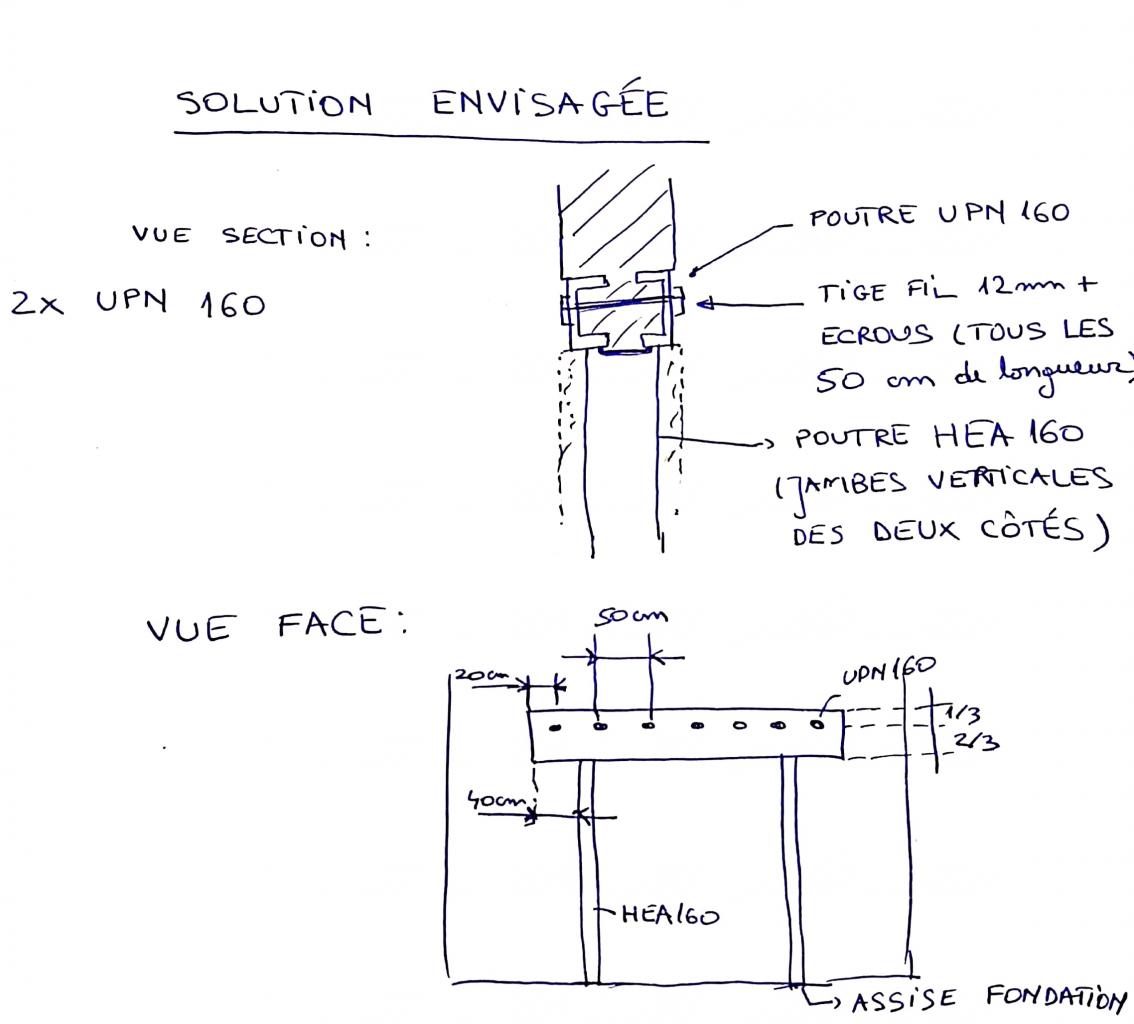 SOLUTION ENVISAGÉE
VUE SECTION :
2x UPN 160
POUTRE UPN 160
TIGE FIL 12mm +
ECROUS (TOUS LES
50 cm de longueur)
POUTRE HEA 160
(JAMBES VERTICALES
DES DEUX CÔTÉS)
VUE FACE :
50cm
20cm
UPN 160
1/3
2/3
40cm
HEA160
ASSISE FONDATION